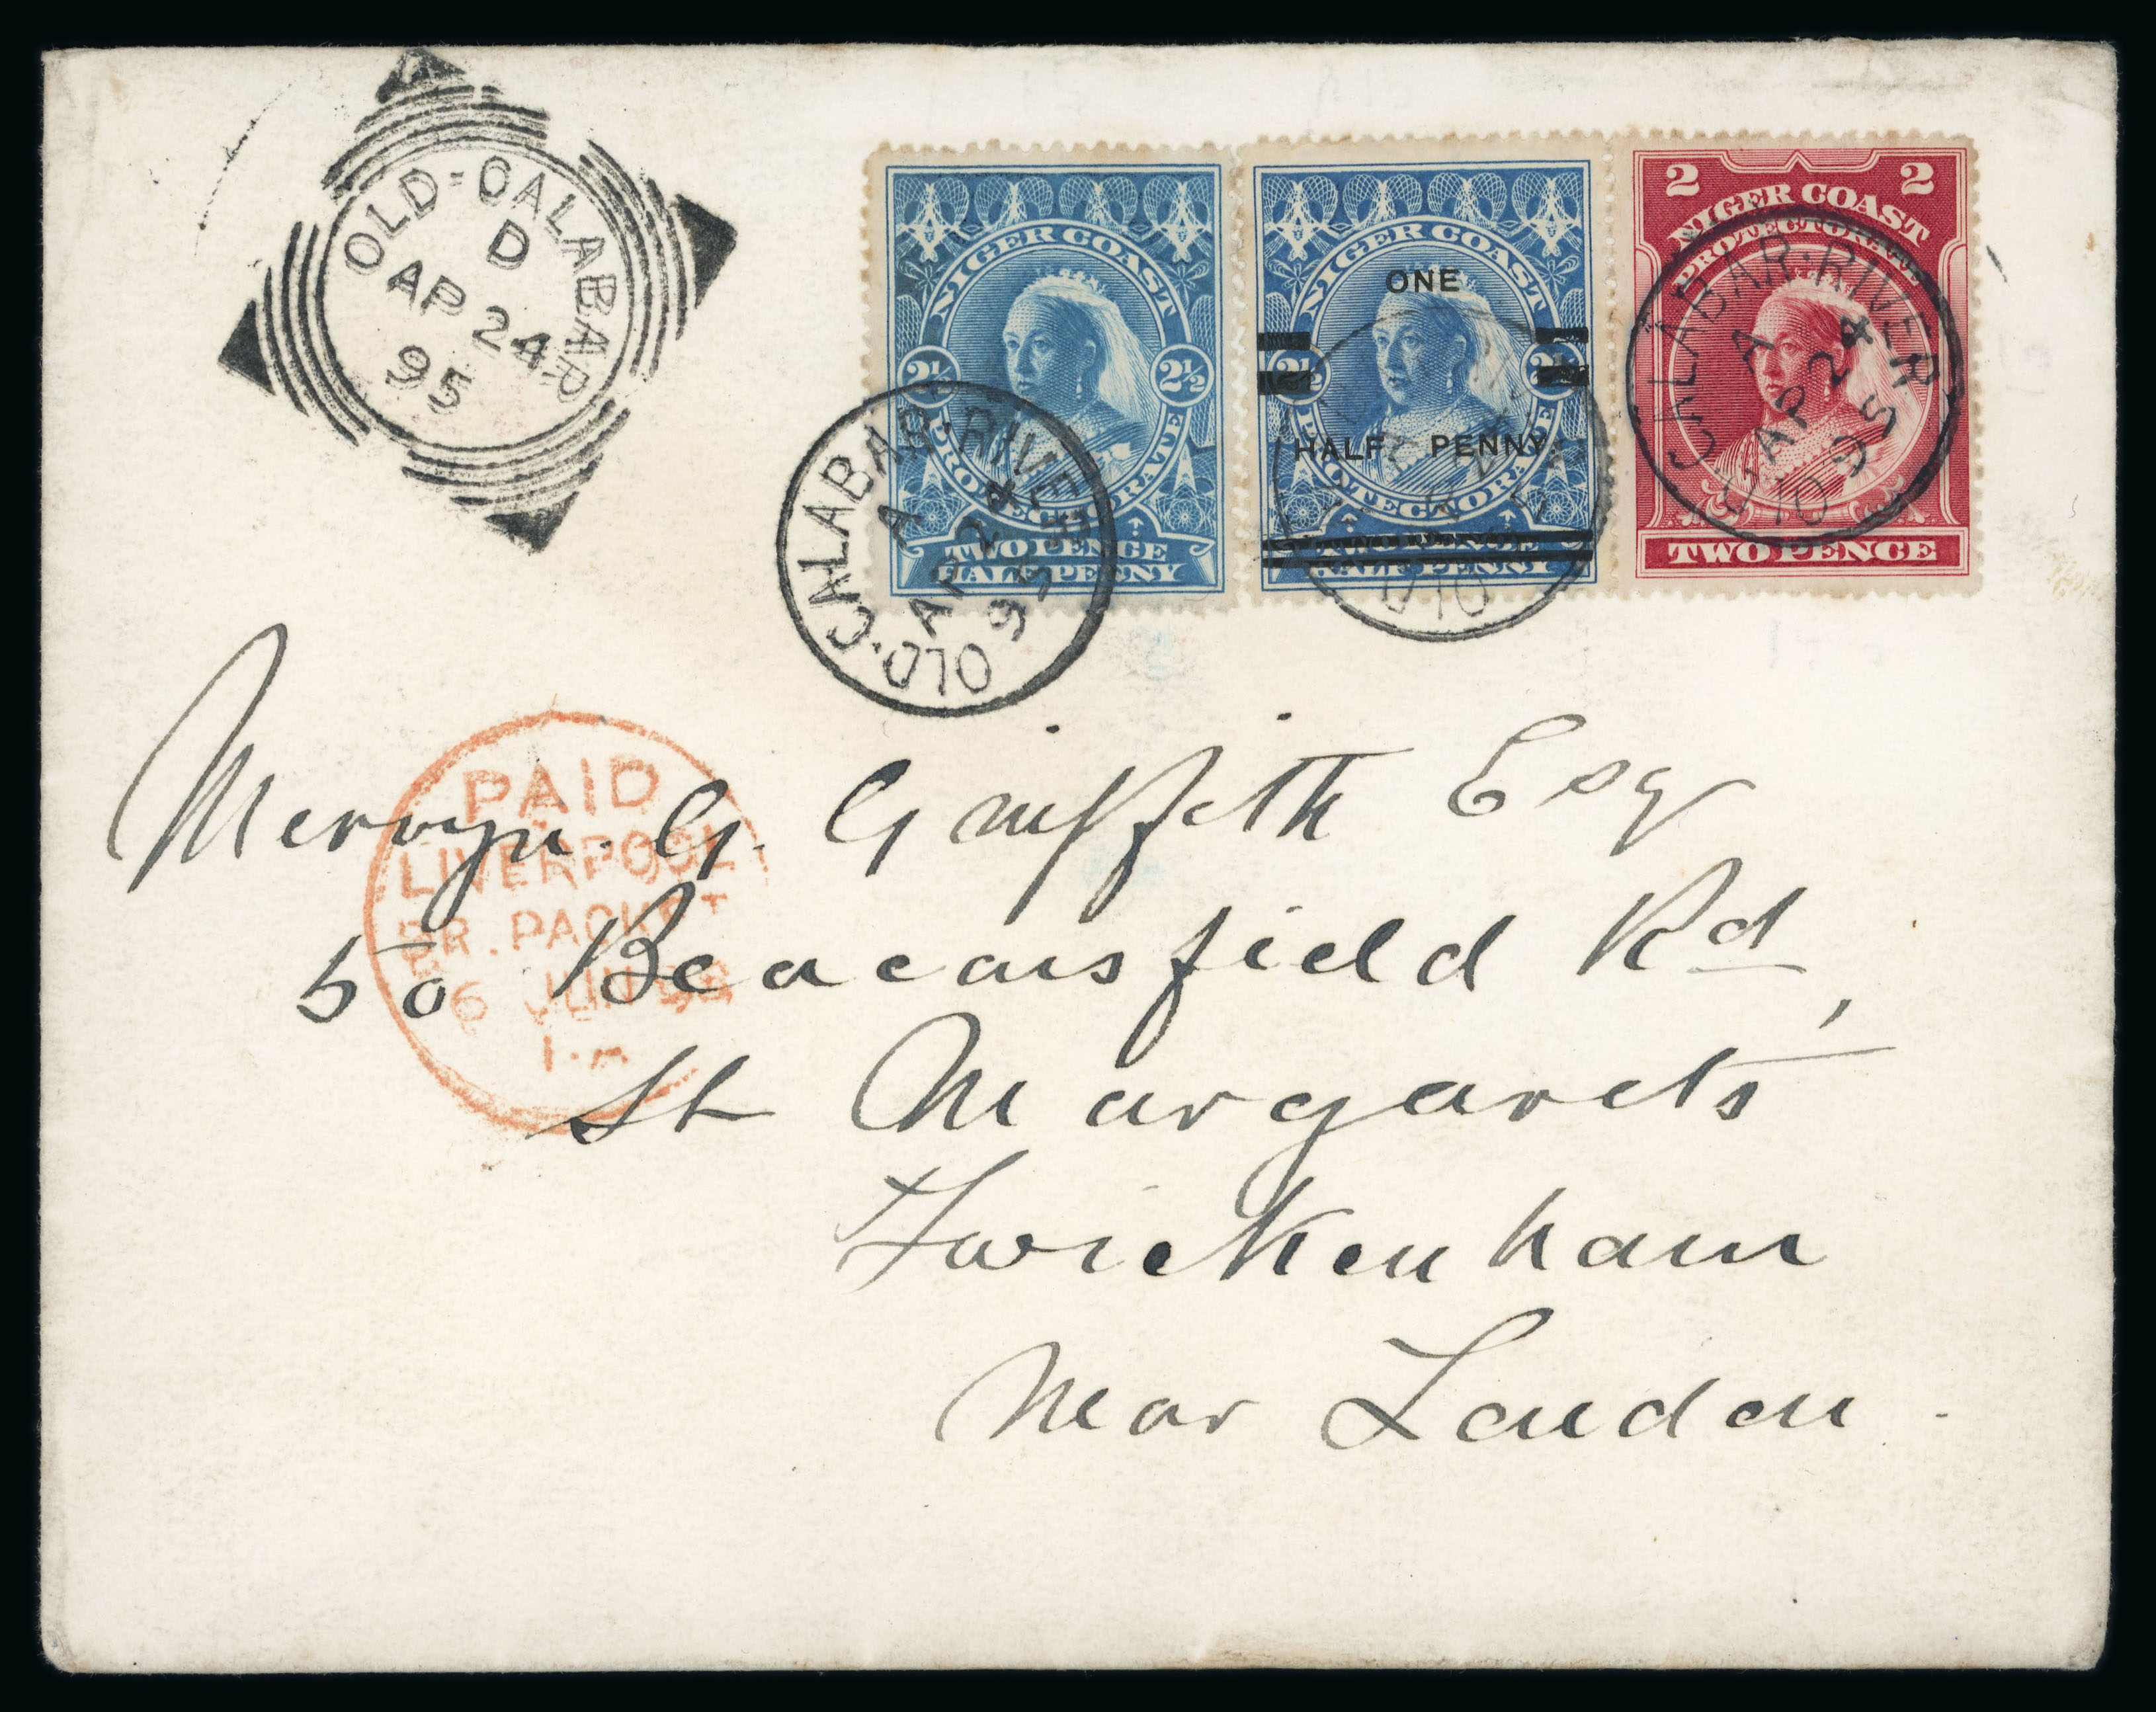 OLD-CALABAR-R
D
AP 24
95
NIGER COAST
PROTECTORATE
2½ 2½
TWO PENCE
HALF PENNY
OLD·CALABAR·RIVER
A
AP 24
95
NIGER COAST
PROTECTORATE
2½ 2½
ONE
HALF PENNY
TWO PENCE
HALF PENNY
OLD
2 2
NIGER COAST
PROTECTORATE
TWO PENCE
OLD CALABAR·RIVER
A
AP 24
95
PAID
LIVERPOOL
BR. PACKET
6 JUN 95
Mervyn. G. Griffith Esq
50 Beaconsfield Rd,
St Margarets
Twickenham
Near London.